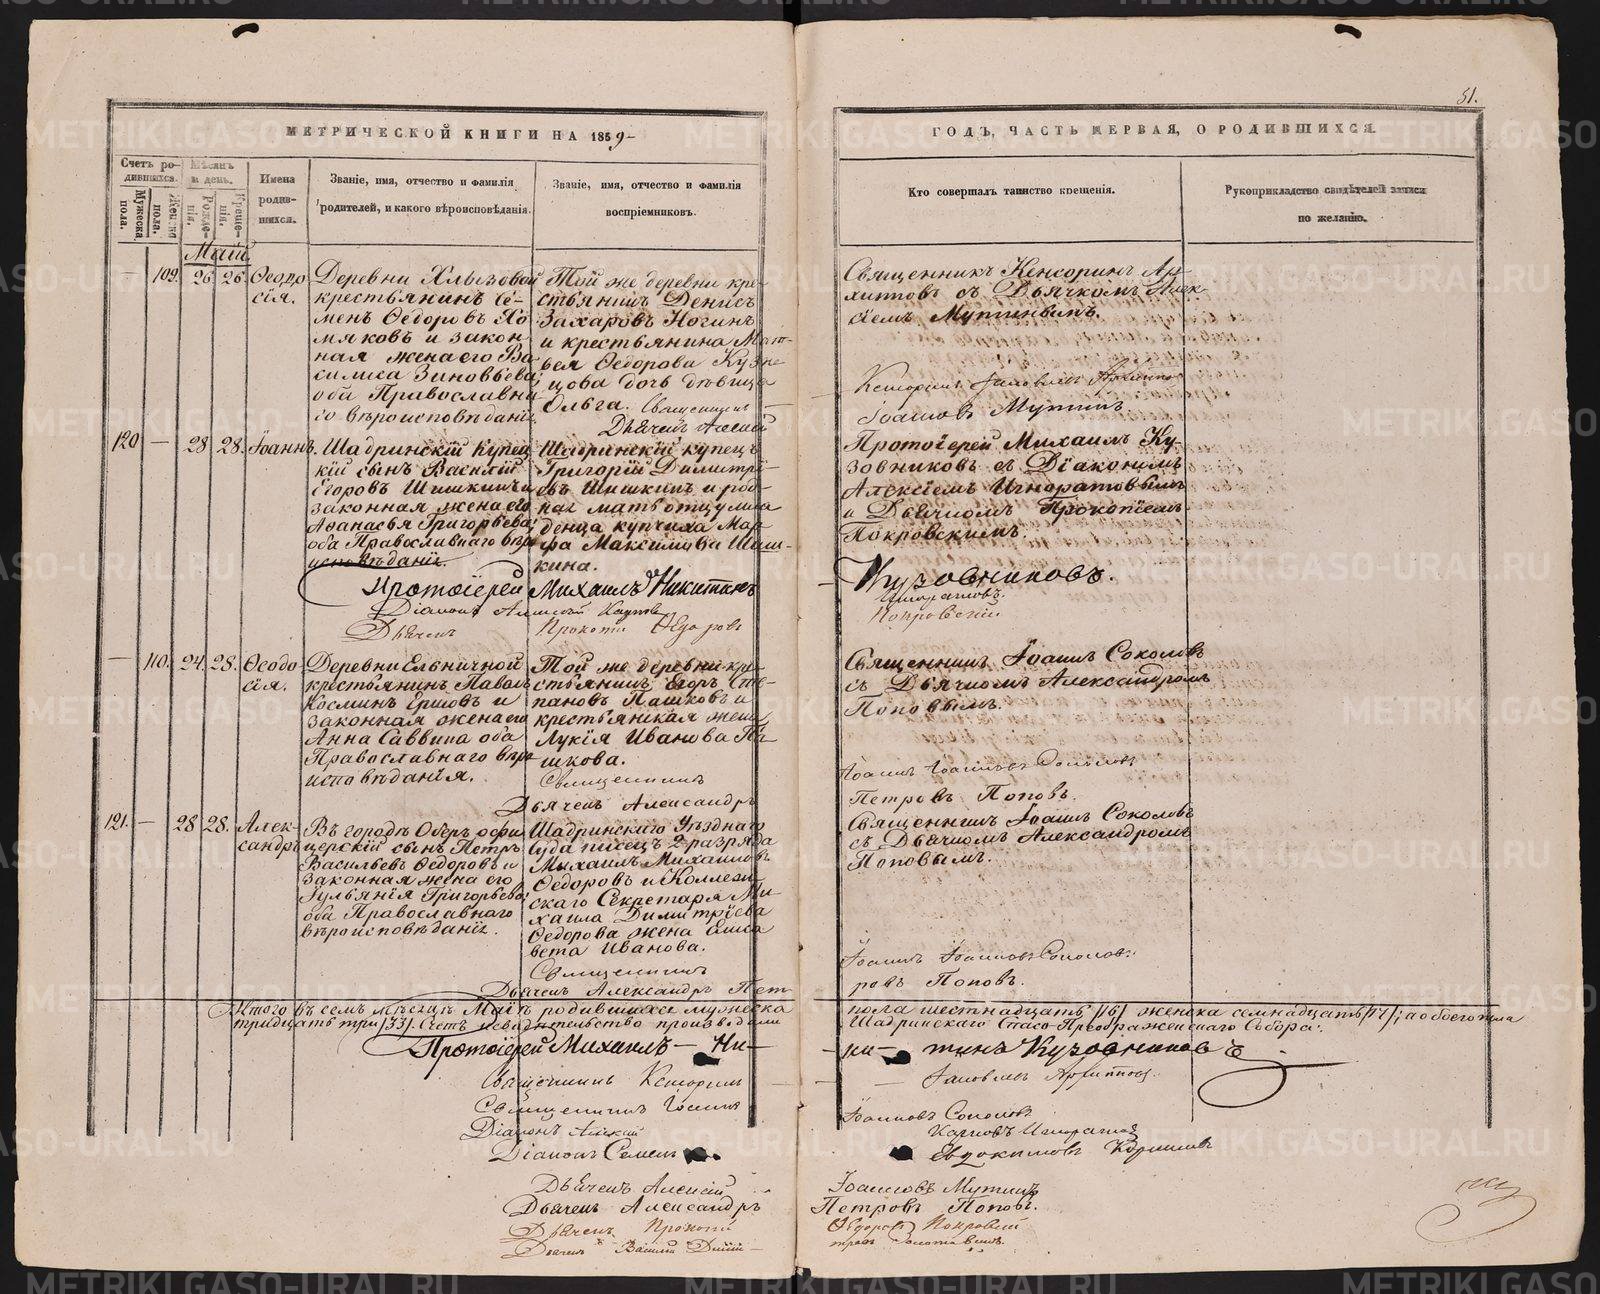 51.
МЕТРИЧЕСКОЙ КНИГИ НА 1859
ГОДЪ, ЧАСТЬ ПЕРВАЯ, О РОДИВШИХСЯ.
Счетъ ро-
дившихся.
Мужеска пола.
Женска пола.
Мѣсяцъ
и день.
Рожде-
нія.
Креще-
нія.
Имена
родив-
шихся.
Званіе, имя, отчество и фамилія
родителей, и какого вѣроисповѣданія.
Званіе, имя, отчество и фамилія
воспріемниковъ.
Кто совершалъ таинство крещенія.
Рукоприкладство свидѣтелей записи
по желанію.
Маій
— 109. 26 26. Ѳеодо
сія.
Деревни Хлызовой
крестьянинъ Се-
менъ Ѳедоровъ Хо
мяковъ и закон
ная жена его Ва
силиса Зиновьева;
оба Православна
го вѣроисповѣданія
Той же деревни кре
стьянинъ Денисъ
Захаровъ Ногинъ
и крестьянина Мат
вея Ѳедорова Кузне
цова дочь дѣвица
Ольга. Священникъ
Дьячекъ Алексій
Священникъ Кенсоринъ Ар-
хиповъ съ Дьячкомъ Алек
сіемъ Мутинымъ.
Іоанновъ Мутинъ
120 — 28 28. Іоаннъ.
Шадринскій Купец
кій сынъ Василій
Егоровъ Шишкинъ и
законная жена его
Аѳанасья Григорьева;
оба Православнаго вѣро
исповѣданія.
Шадринскій купецъ
Григорій Димитрі-
евъ Шишкинъ и род-
ная мать отцу мла
денца купчиха Мар
ѳа Максимова Шиш-
кина.
Протоіерей Михаилъ Ку-
зовниковъ съ Діакономъ
Алексіемъ Игноратовымъ
и Дьячкомъ Прокопіемъ
Покровскимъ.
Протоіерей Михаилъ Никитинъ
Кузовниковъ.
Діаконъ Алексій Карповъ
Дьячекъ Прокопій Ѳедоровъ
Покровскій
— 110. 24. 28. Ѳеодо
сія.
Деревни Ельничной
крестьянинъ Павелъ
Косминъ и
законная жена его
Анна Саввина оба
Православнаго вѣро
исповѣданія.
Той же деревни кре-
стьянинъ Егоръ Сте-
пановъ Пашковъ и
крестьянская жена
Лукія Иванова Па
шкова.
Священникъ
Дьячекъ Александръ
Священникъ Іоаннъ Соколовъ
съ Дьячкомъ Александромъ
Поповымъ.
Іоаннъ Іоанновъ Соколовъ
Петровъ Поповъ.
121. — 28 28. Алек-
сандръ
Въ городѣ Оберъ офи
церскій сынъ Петръ
Васильевъ Ѳедоровъ и
законная жена его
Іульянія Григорьева;
оба Православнаго
вѣроисповѣданія.
Шадринскаго Уѣзднаго
Суда писецъ 2 разряда
Михаилъ Михаиловъ
Ѳедоровъ и Коллеж-
скаго Секретаря Ми
хаила Димитріева
Ѳедорова жена Елиса
вета Иванова.
Священникъ
Дьячекъ Александръ Пет-
Священникъ Іоаннъ Соколовъ
съ Дьячкомъ Александромъ
Поповымъ.
Іоаннъ Іоанновъ Соколовъ:
ровъ Поповъ.
Итого въ семъ мѣсяцѣ Маіѣ родившихся мужеска
пола шестнадцать /16/ женска семнадцать /17/; а обоего пола
тридцать три /33/. Счетъ и свидѣтельство производили
Шадринскаго Спасо-Преображенскаго Собора:
Протоіерей Михаилъ — Ни-
ки- тинъ Кузовниковъ
Священникъ Кенсоринъ
Архиповъ.
Священникъ Іоаннъ
Іоанновъ Соколовъ
Діаконъ Алексій
Карповъ
Діаконъ Семенъ
Евдокимовъ
Дьячекъ Алексій
Іоанновъ Мутинъ
Дьячекъ Александръ
Петровъ Поповъ.
Дьячекъ Прокопій
Ѳедоровъ Покровскій
Дьячекъ Василій Дими-
METRIKI.GASO-URAL.RU